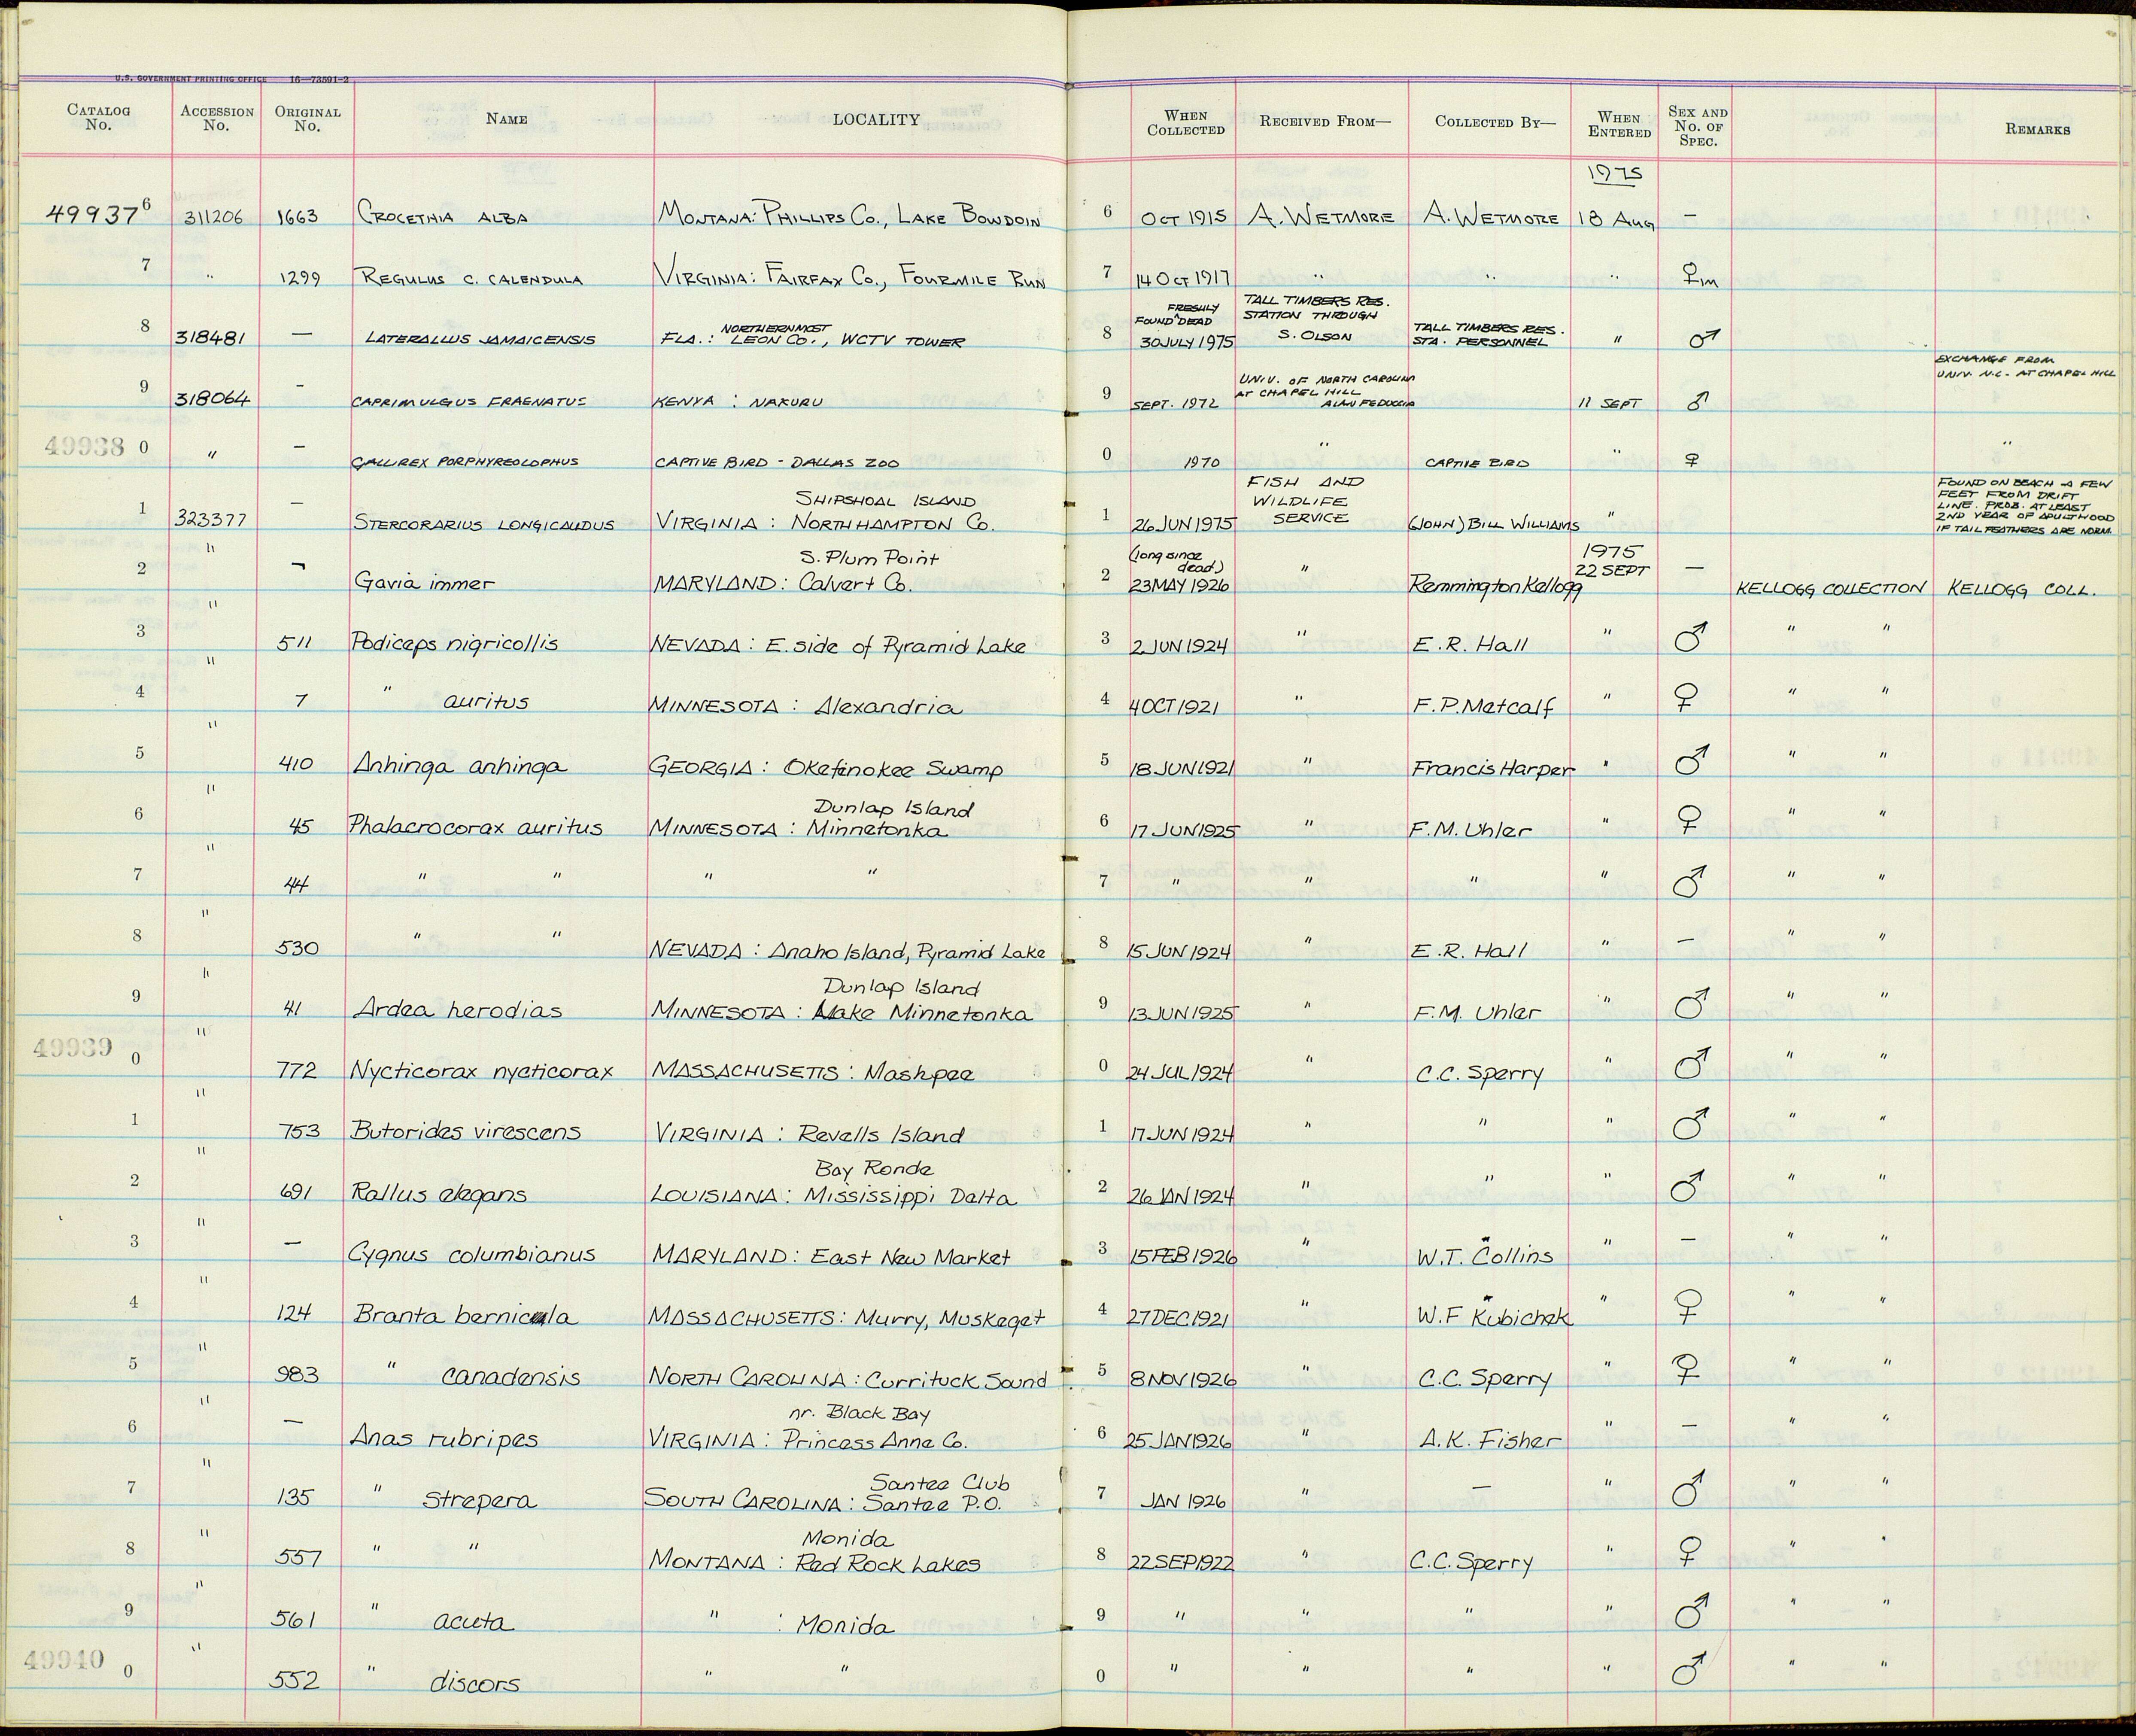 U.S. GOVERNMENT PRINTING OFFICE 16—73591-2
CATALOG No. ACCESSION No. ORIGINAL No. NAME LOCALITY WHEN COLLECTED RECEIVED FROM— COLLECTED BY— WHEN ENTERED SEX AND No. OF SPEC. REMARKS
1975
499376 311206 1663 CROCETHIA ALBA MONTANA: PHILLIPS CO., LAKE BOWDOIN 6 OCT 1915 A. WETMORE A. WETMORE 18 AUG —
7 " 1299 REGULUS C. CALENDULA VIRGINIA: FAIRFAX CO., FOURMILE RUN 7 14 OCT 1917 " " " ♀m
FRESHLY TALL TIMBERS RES.
NORTHERNMOST FOUND ^ DEAD STATION THROUGH TALL TIMBERS RES.
8 318481 — LATERALLUS JAMAICENSIS FLA.: LEON CO., WCTV TOWER 8 30 JULY 1975 S. OLSON STA. PERSONNEL " ♂
EXCHANGE FROM
UNIV. OF NORTH CAROLINA UNIV. N.C. - AT CHAPEL HILL
AT CHAPEL HILL
9 318064 - CAPRIMULGUS FRAENATUS KENYA : NAKURU 9 SEPT. 1972 ALAN FEDUCCIA 11 SEPT ♂
49938 0 " — GALLIREX PORPHYREOLOPHUS CAPTIVE BIRD - DALLAS ZOO 0 1970 " CAPTIVE BIRD " ♀ "
FISH AND FOUND ON BEACH A FEW
SHIPSHOAL ISLAND WILDLIFE FEET FROM DRIFT
LINE. PROB. AT LEAST
1 323377 — STERCORARIUS LONGICAUDUS VIRGINIA : NORTHHAMPTON CO. 1 26 JUN 1975 SERVICE (JOHN) BILL WILLIAMS " 2ND YEAR OF ADULTHOOD
IF TAIL FEATHERS ARE NORM.
S. Plum Point (long since dead) 1975
2 " — Gavia immer MARYLAND: Calvert Co. 2 23 MAY 1926 " Remmington Kellogg 22 SEPT — KELLOGG COLLECTION KELLOGG COLL.
3 " 511 Podiceps nigricollis NEVADA: E. side of Pyramid Lake 3 2 JUN 1924 " E.R. Hall " ♂ " "
4 " 7 " auritus MINNESOTA : Alexandria 4 4 OCT 1921 " F.P. Metcalf " ♀ " "
5 " 410 Anhinga anhinga GEORGIA : Okefinokee Swamp 5 18 JUN 1921 " Francis Harper " ♂ " "
Dunlap Island
6 " 45 Phalacrocorax auritus MINNESOTA : Minnetonka 6 17 JUN 1925 " F.M. Uhler " ♀ " "
7 " 44 " " " " 7 " " " " ♂ " "
8 " 530 " " NEVADA : Anaho Island, Pyramid Lake 8 15 JUN 1924 " E.R. Hall " — " "
Dunlap Island
9 " 41 Ardea herodias MINNESOTA : Lake Minnetonka 9 13 JUN 1925 " F.M. Uhler " ♂ " "
49939 0 " 772 Nycticorax nycticorax MASSACHUSETTS : Mashpee 0 24 JUL 1924 " C.C. Sperry " ♂ " "
1 " 753 Butorides virescens VIRGINIA : Revells Island 1 17 JUN 1924 " " " ♂ " "
Bay Ronde
2 " 691 Rallus elegans LOUISIANA : Mississippi Delta 2 26 JAN 1924 " " " ♂ " "
3 " — Cygnus columbianus MARYLAND : East New Market 3 15 FEB 1926 " W.T. Collins " — " "
4 " 124 Branta bernicla MASSACHUSETTS: Murry, Muskeget 4 27 DEC 1921 " W.F Kubichek " ♀ " "
5 " 983 " canadensis NORTH CAROLINA : Currituck Sound 5 8 NOV 1926 " C.C. Sperry " ♀ " "
nr. Black Bay
6 " — Anas rubripes VIRGINIA : Princess Anne Co. 6 25 JAN 1926 " A.K. Fisher " — " "
Santee Club
7 " 135 " strepera SOUTH CAROLINA : Santee P.O. 7 JAN 1926 " — " ♂ " "
Monida
8 " 557 " " MONTANA : Red Rock Lakes 8 22 SEP 1922 " C.C. Sperry " ♀ " "
9 " 561 " acuta " : Monida 9 " " " " ♂ " "
49940 0 " 552 " discors " " 0 " " " " ♂ " "